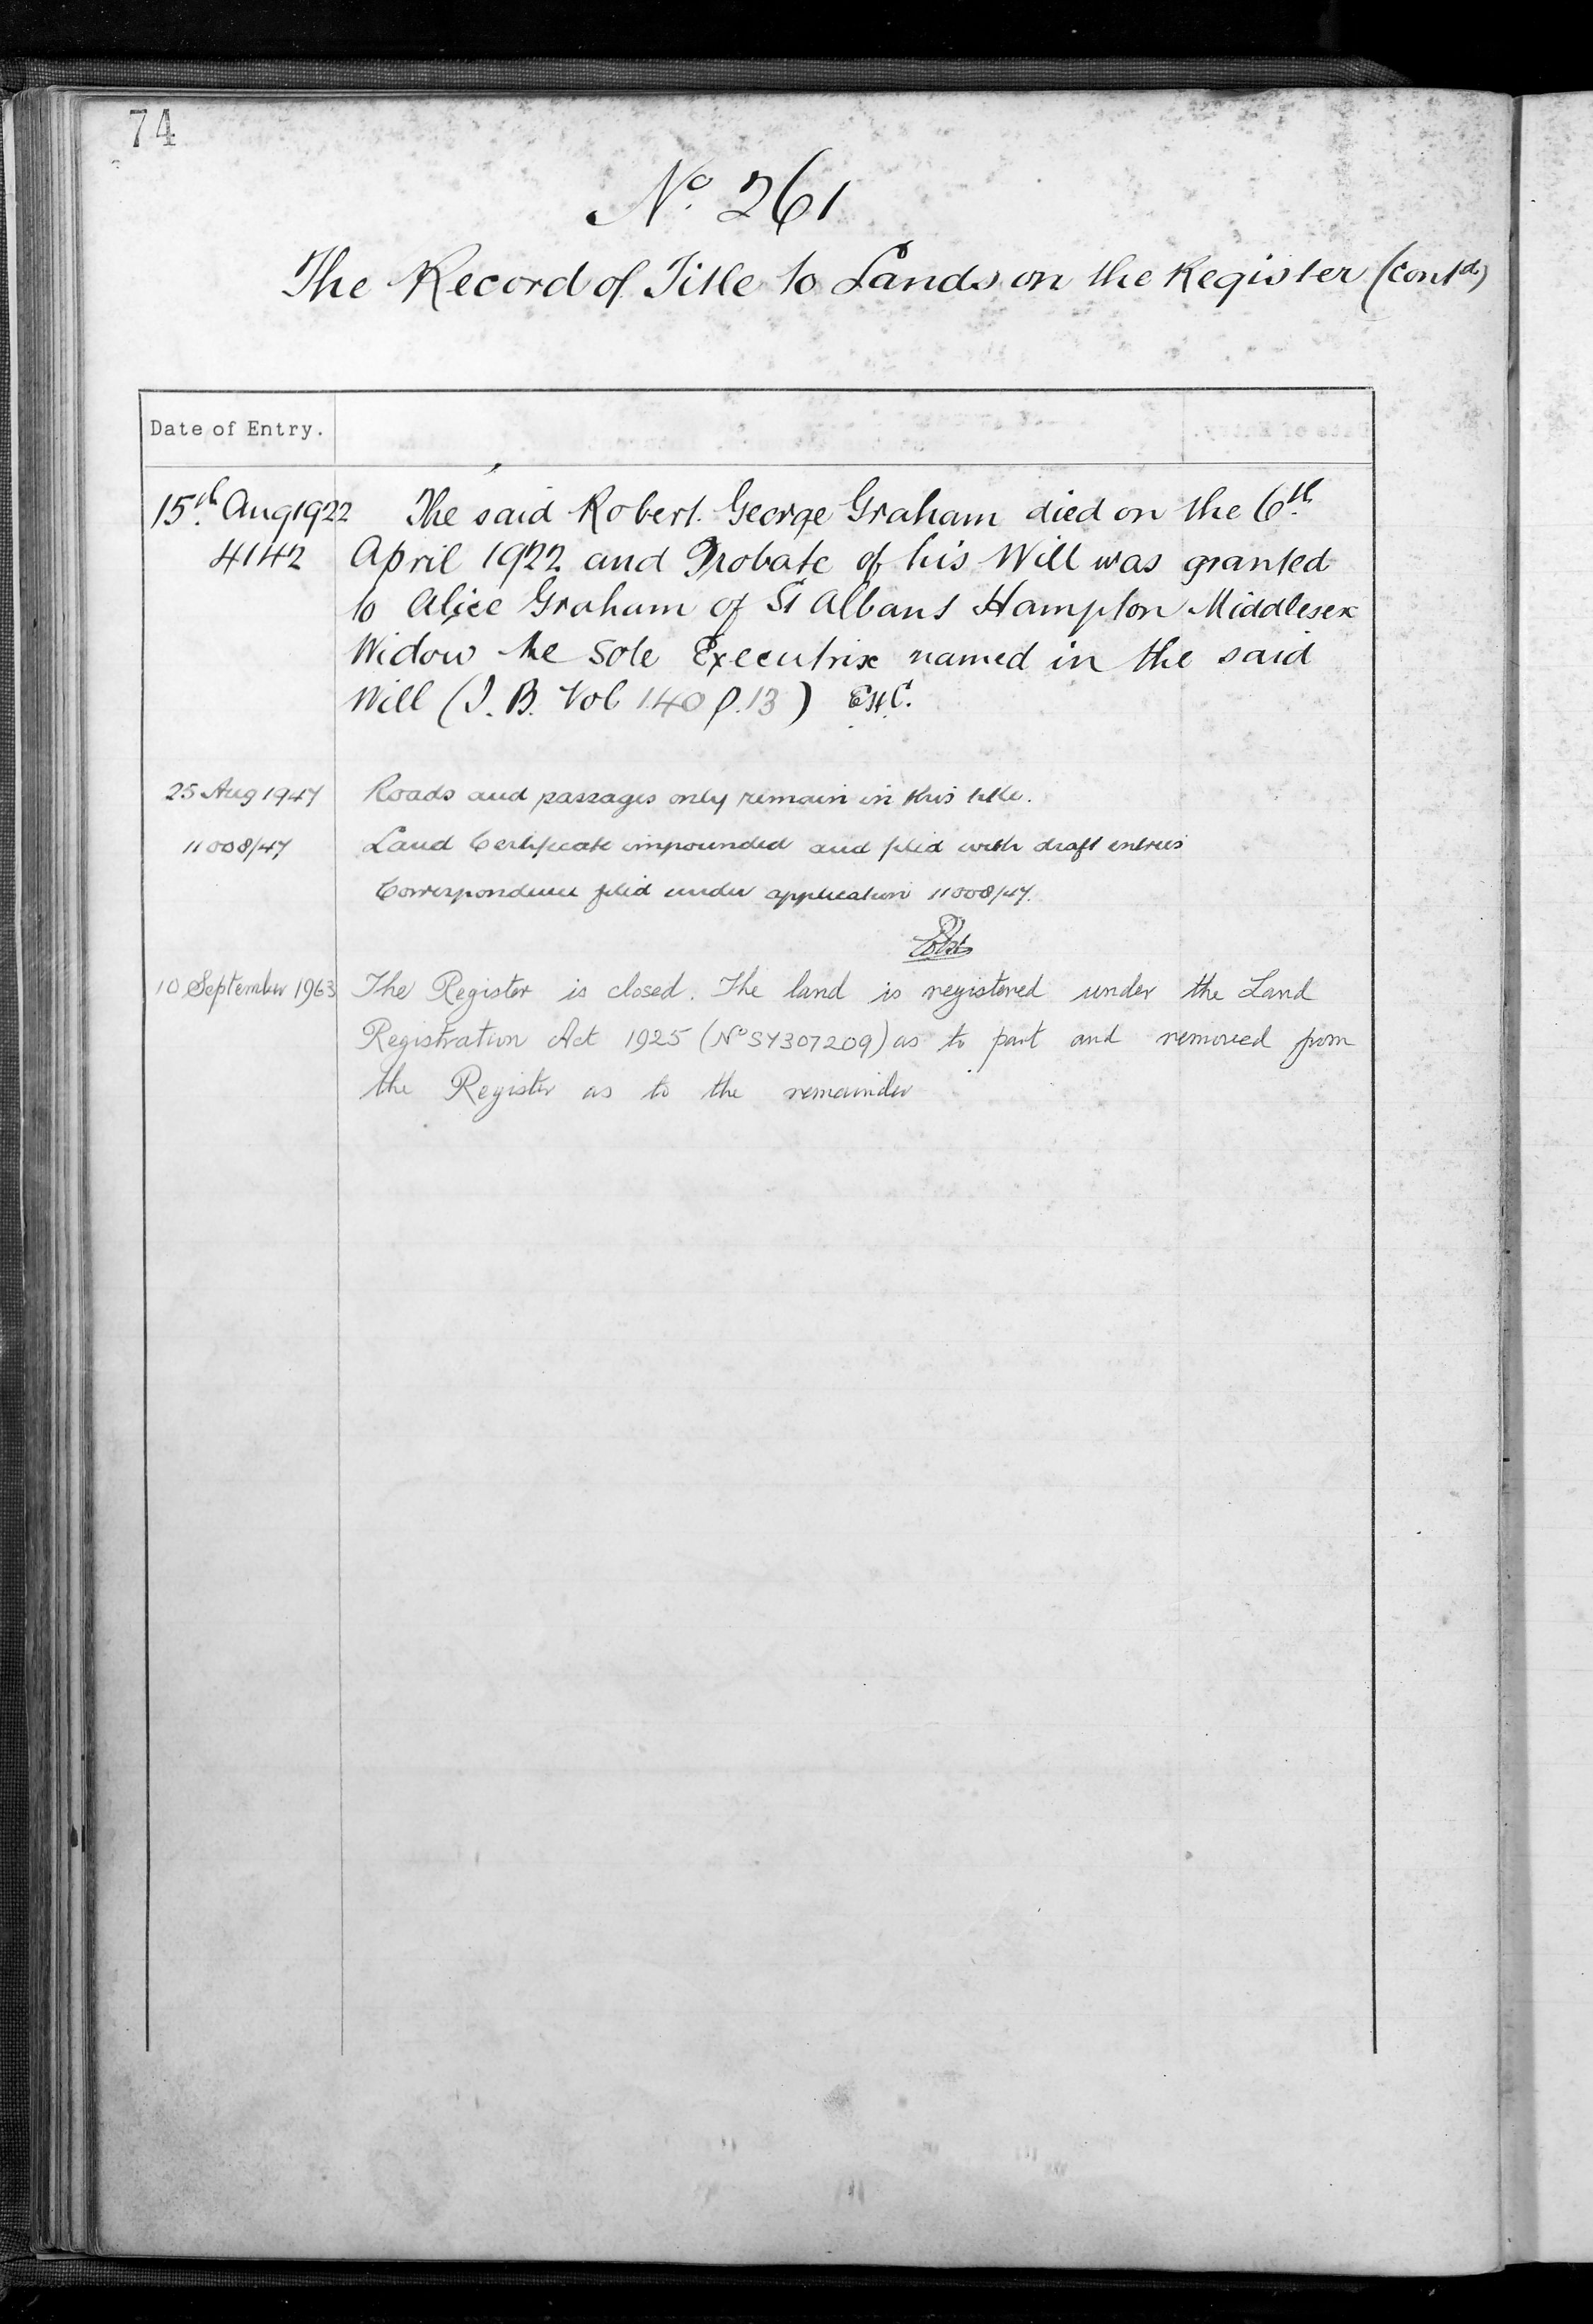 74
No. 261
The Record of Title to Lands on the Register (Contd)
Date of Entry.
15th Aug 1922 The said Robert George Graham died on the 6th
4142 April 1922 and Probate of his Will was granted
to Alice Graham of St Albans Hampton Middlesex
Widow the sole Executrix named in the said
Will (I. B. Vol 140 p. 13) E.H.C.
25 Aug 1947 Roads and passages only remain in this title.
11008/47 Land Certificate impounded and filed with draft entries
Correspondence filed under application 11008/47.
10 September 1963 The Register is closed. The land is registered under the Land
Registration Act 1925 (No SY307209) as to part and removed from
the Register as to the remainder